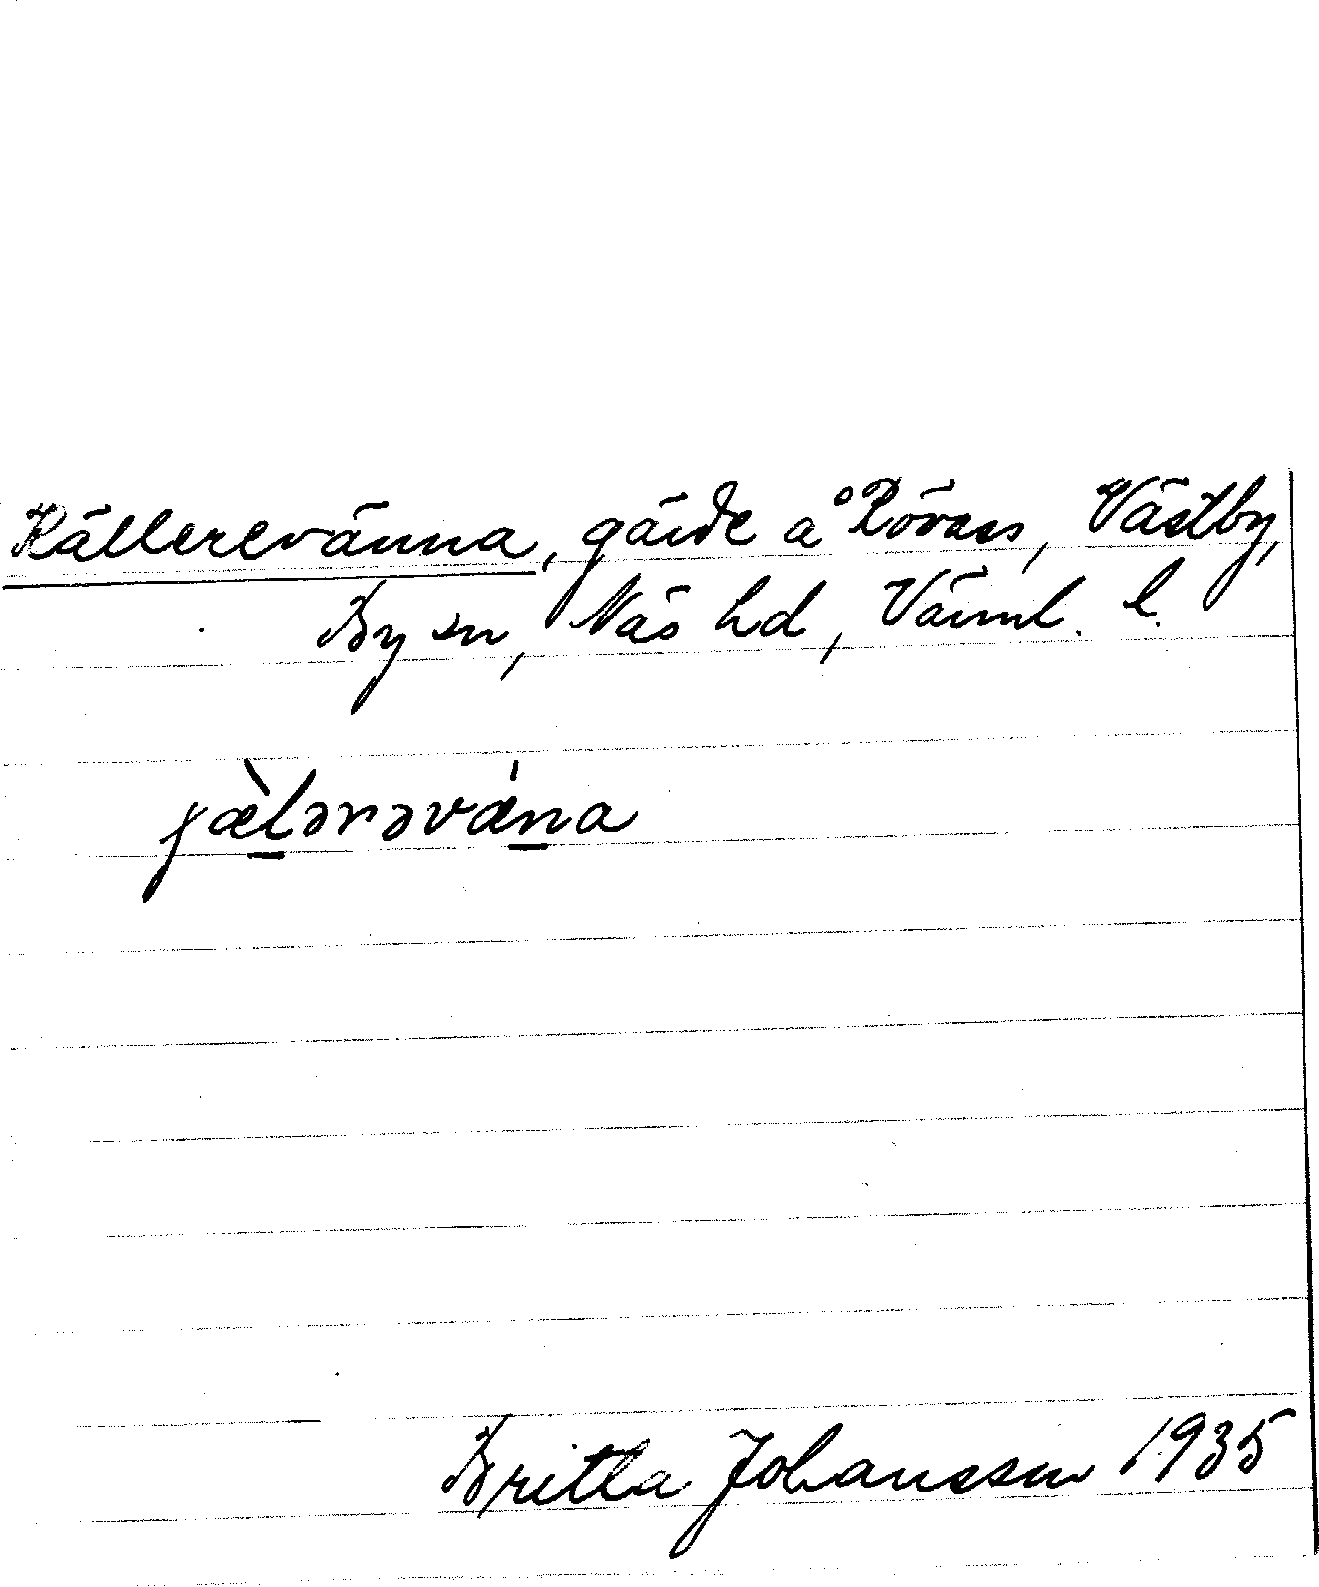 Källerevänna, gärde å Rövass, Västby,
By sn, Näs hd, Värml. l.
ɟæ̀lərəvǽna
Britta Johansson 1935